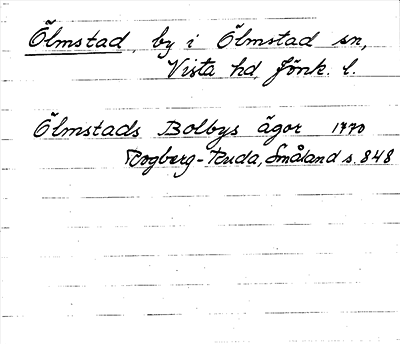 Ölmstad, by i Ölmstad sn,
Vista hd, Jönk. l.
Ölmstads Bolbys ägor 1770
Rogberg-Ruda, Småland s. 848